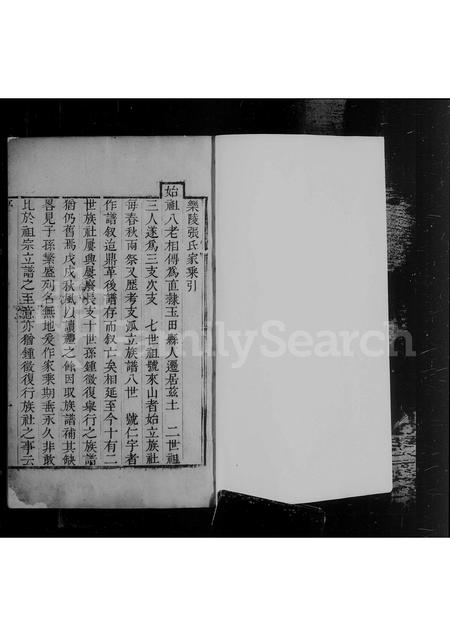 樂陵張氏家乘引
始祖八老相傳為直隸玉田縣人遷居茲土 二世祖
三人遂為三支次支 七世祖號來山者始立族社
每春秋兩祭又歷考支派立族譜八世 號仁宇者
作譜叙迨鼎革後譜存而叙亡矣相延至今十有一
世族社屢興屢廢長支十世孫鍾徵復舉行之族譜
猶仍舊焉戊戌秋風以讀禮之餘因取族譜補其缺
畧見子孫繁盛列名無地爰作家乘期垂永久非敢
比於祖宗立譜之至意亦猶鍾徵復行族社之事云
FamilySearch